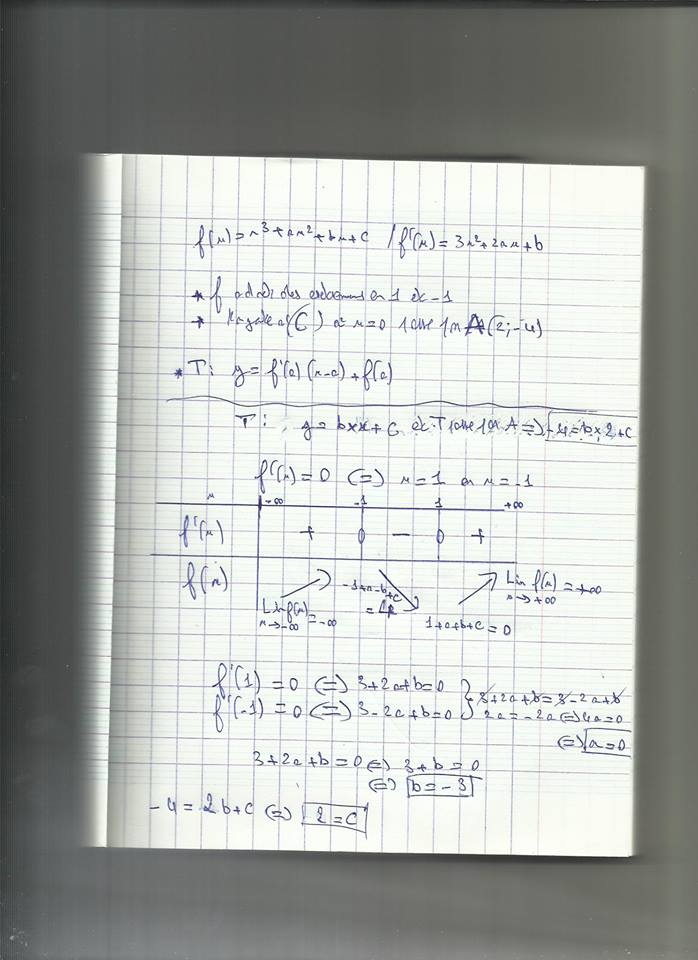 f(x) = x³ + ax² + bx + c / f'(x) = 3x² + 2ax + b
* f admet des extremums en 1 et -1
* (C) x=0 passe par A(2; -4)
* T: y = f'(a) (x-a) + f(a)
T: y = b×x + c et T passe par A => -4 = b × 2 + c
f'(x) = 0 <=> x = 1 ou x = -1
x -∞ -1 1 +∞
f'(x) + 0 - 0 +
f(x) Lim f(x) = -∞ x→-∞ -1+a-b+c = 4 1+a+b+c = 0 Lim f(x) = +∞ x→+∞
f'(1) = 0 <=> 3+2a+b=0 } 3+2a+b = 3-2a+b
f'(-1) = 0 <=> 3-2a+b=0 } 2a = -2a <=> 4a=0
<=> a=0
3+2a+b = 0 <=> 3+b = 0
<=> b = -3
-4 = 2b+c <=> 2 = c